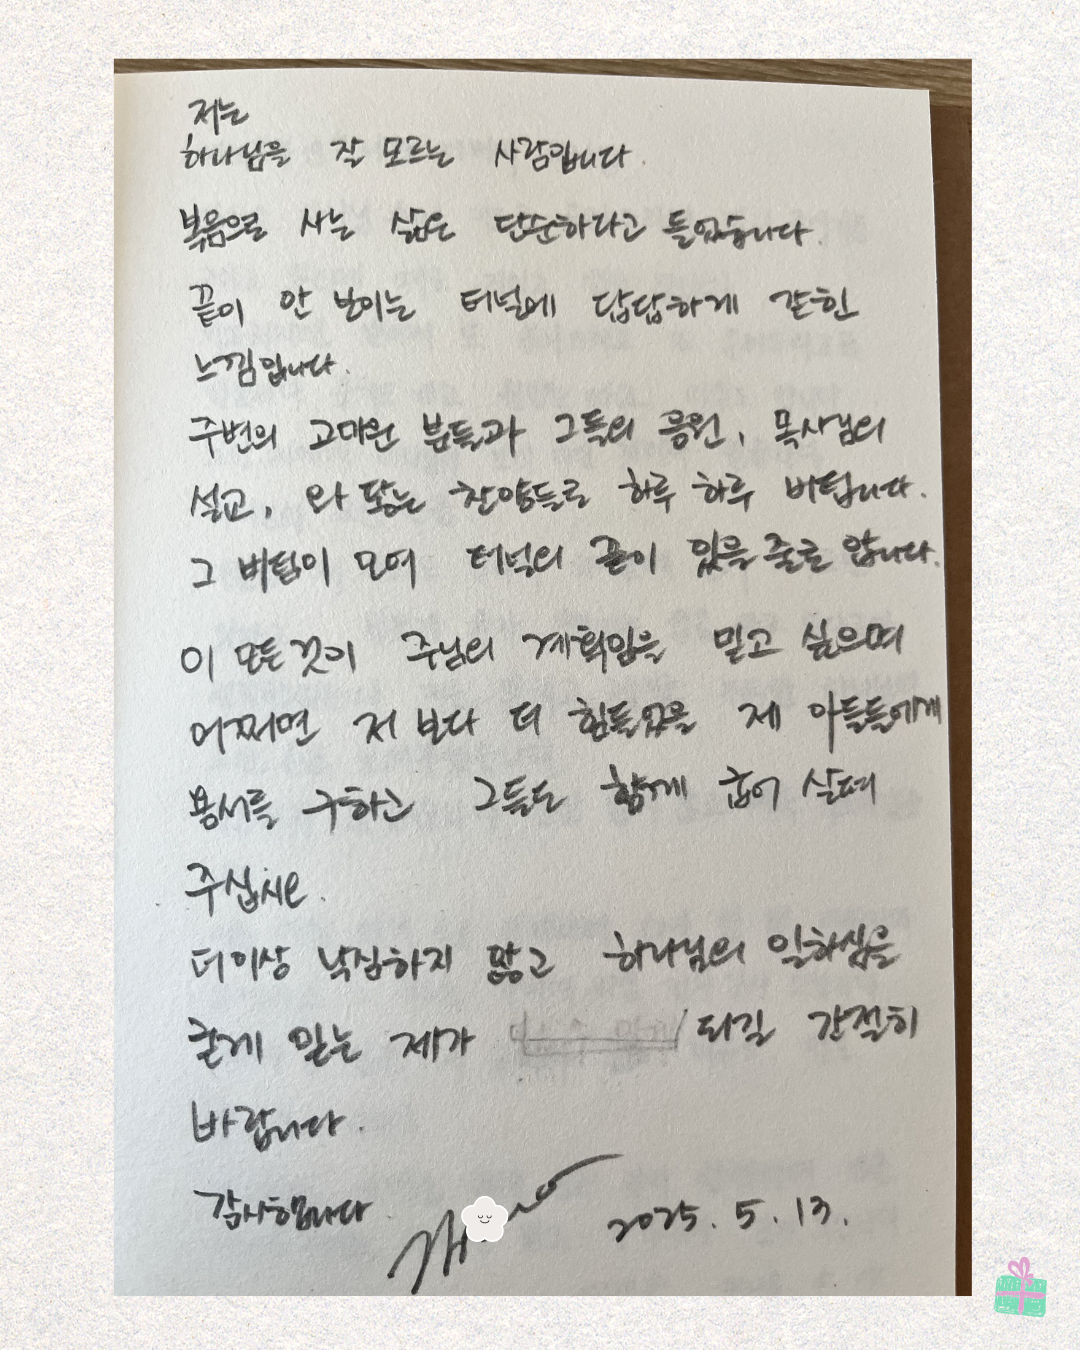 저는
하나님을 잘 모르는 사람입니다.
복음으로 사는 삶은 단순하다고 들었습니다.
끝이 안 보이는 터널에 답답하게 갇힌
느낌입니다.
주변의 고마운 분들과 그들의 응원, 목사님의
설교, 와 닿는 찬양들로 하루 하루 버팁니다.
그 버팀이 모여 터널의 끝이 있을 줄로 압니다.
이 모든 것이 주님의 계획임을 믿고 싶으며
어쩌면 저 보다 더 힘들었을 제 아들들에게
용서를 구하고 그들도 함께 굽어 살펴
주십시오.
더이상 낙심하지 않고 하나님의 일하심을
굳게 믿는 제가 되길 간절히
바랍니다.
감사합니다 2025. 5. 13.